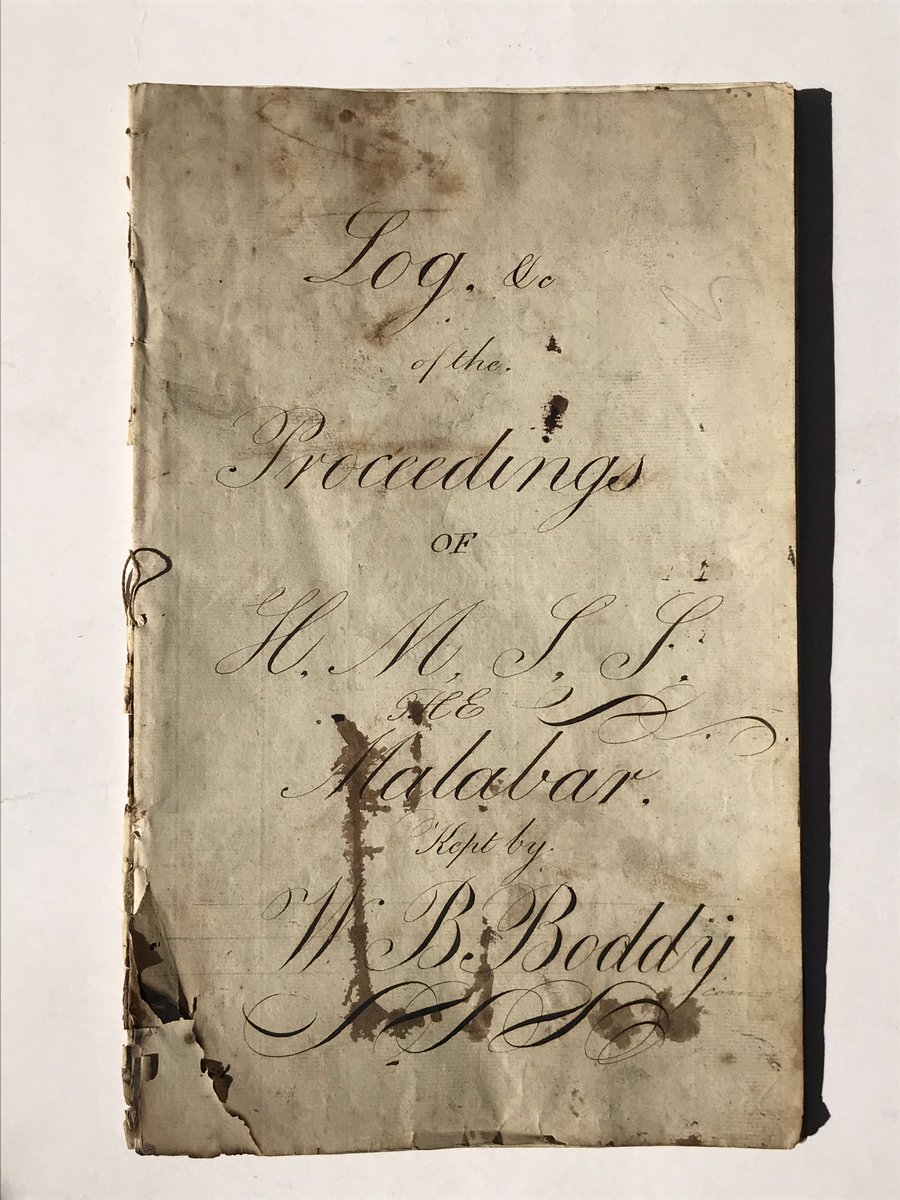 Log. &c
of the.
Proceedings
OF
H. M. S. S.
THE
Malabar.
Kept by.
W. B. Boddy